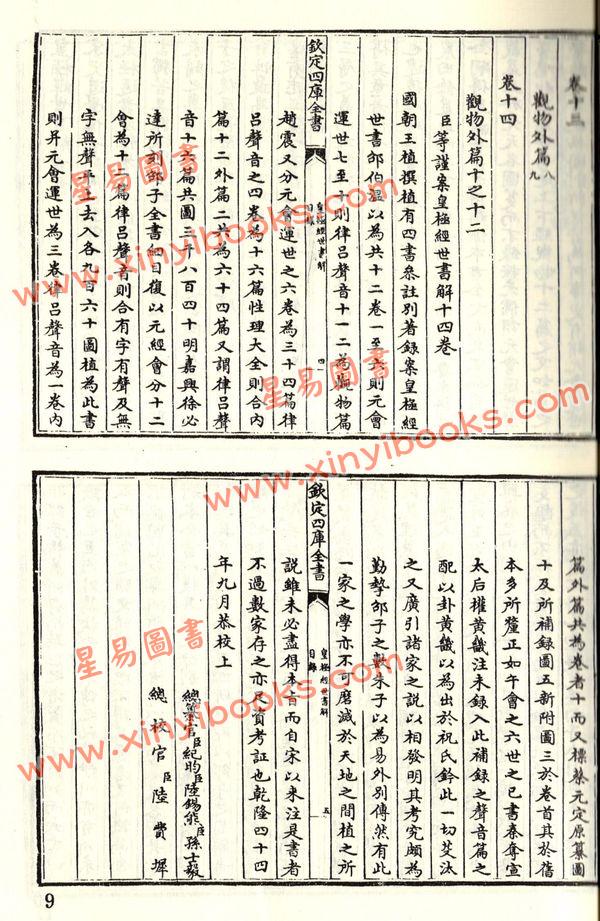 卷十三
觀物外篇八
九
卷十四
觀物外篇十之十二
臣等謹案皇極經世書解十四卷
國朝王植撰植有四書叅註别著録案皇極經
世書邵伯温以為共十二卷一至六則元會
運世七至十則律吕聲音十一二為觀物篇
欽定四庫全書
皇極經世書解
目録
四
趙震又分元會運世之六卷為三十四篇律
吕聲音之四卷為十六篇性理大全則合内
篇十二外篇二共為六十四篇又謂律吕聲
音十六篇共圖三千八百四十明嘉興徐必
達所刻邵子全書細目復以元經會分十二
會為十二篇律吕聲音則合有字有聲及無
字無聲平上去入各九百六十圖植為此書
則并元會運世為三卷律吕聲音為一卷内
篇外篇共為卷者十而又標蔡元定原纂圖
十及所補録圖五新附圖三於卷首其於舊
本多所釐正如午會之六世之巳書秦奪宣
太后權黄畿注未録入此補録之聲音篇之
配以卦黄畿以為出於祝氏鈐此一切芟汰
之又廣引諸家之說以相發明其考究頗為
勤摯邵子之數朱子以為易外别傳然有此
一家之學亦不可磨滅於天地之間植之所
欽定四庫全書
皇極經世書解
目録
五
說雖未必盡得本旨而自宋以來注是書者
不過數家存之亦足資考証也乾隆四十四
年九月恭校上
總纂官臣紀昀臣陸錫熊臣孫士毅
總校官臣陸費墀
9
星易圖書
www.xinyibooks.com
星易圖書
www.xinyibooks.com
星易圖書
www.xinyibooks.com
星易圖書
www.xinyibooks.com